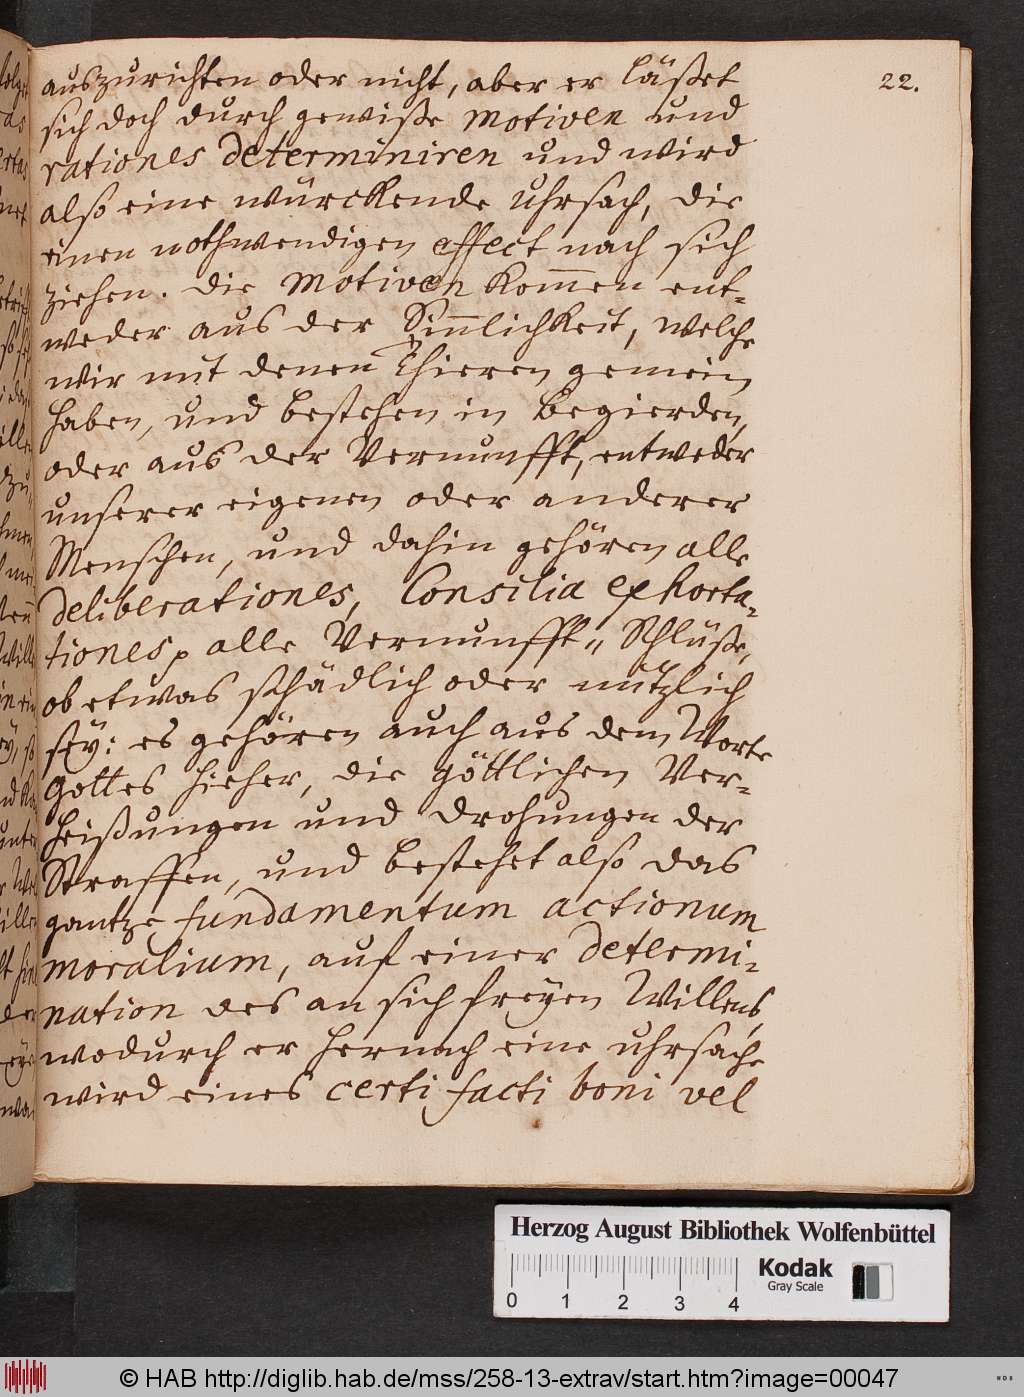 22.
auszurichten oder nicht, aber er läßet
sich doch durch gewiße motiven und
rationes determiniren und wird
also eine würckende uhrsach, die
einen nothwendigen effect nach sich
ziehen. die motiven kom̄en ent-
weder aus der Sin̄lichkeit, welche
wir mit denen Thieren gemein
haben, und bestehen in Begierden,
oder aus der Vernunfft, entweder
unserer eigenen oder anderer
Menschen, und dahin gehören alle
deliberationes, Consilia exhorta-
tiones, alle Vernunfft-Schlüße,
ob etwas schädlich oder nützlich
seÿ: es gehören auch aus dem Worte
Gottes hieher, die göttlichen Ver-
heißungen und drohungen der
Straffen, und bestehet also das
gantze fundamentum actionum
moralium, auf einer determi-
nation des an sich freÿen Willens,
wodurch er hernach eine uhrsache
wird eines certi facti boni vel
Herzog August Bibliothek Wolfenbüttel
Kodak
Gray Scale
0 1 2 3 4
© HAB http://diglib.hab.de/mss/258-13-extrav/start.htm?image=00047